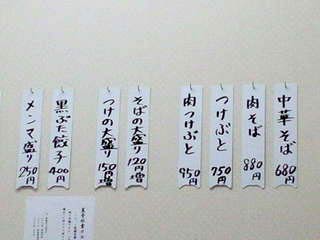 中華そば
680円
肉そば
880円
つけぶと
750円
肉つけぶと
950円
そばの大盛り
120円増
つけの大盛り
150円増
黒ぶた餃子
400円
メンマ盛り
250円